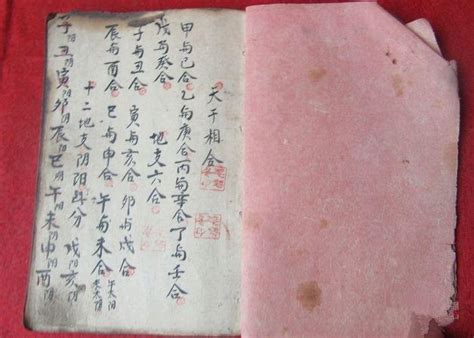 天干相合
甲与已合乙与庚合丙与辛合丁与壬合
戊与癸合
地支六合
子与丑合 寅与亥合 卯与戌合
辰与酉合 巳与申合 午与未合 午太阳 未太阴
十二地支阴阳分
子阳丑阴寅阳卯阴辰阳巳阴午阳未阴申阳酉阴
戌阳亥阴